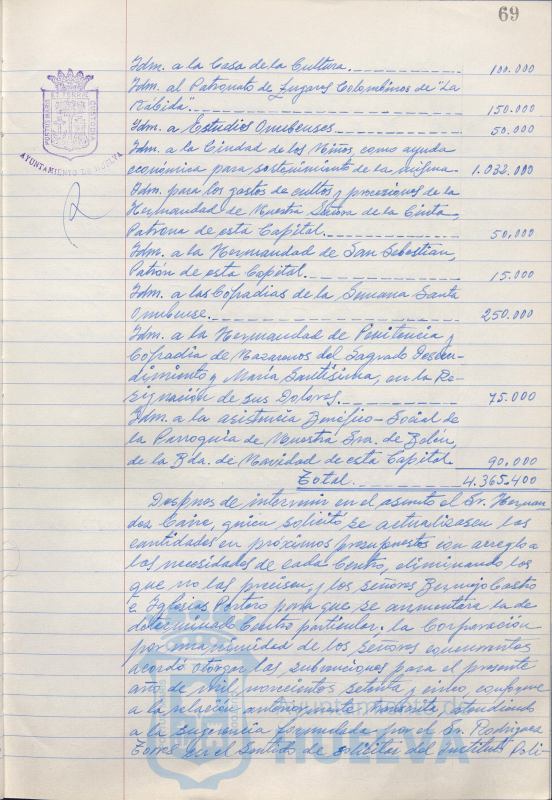 69
Idm. a la Casa de la Cultura. 100.000
Idm. al Patronato de Lugares Colombinos de "La
Rábida". 150.000
Idm. a Estudios Onubenses. 50.000
Idm. a la Ciudad de los Niños, como ayuda
económica para sostenimiento de la misma. 1.032.000
Idm. para los gastos de cultos y procesiones de la
Hermandad de Nuestra Señora de la Cinta,
Patrona de esta Capital. 50.000
Idm. a la Hermandad de San Sebastián,
Patrón de esta Capital. 15.000
Idm. a las Cofradías de la Semana Santa
Onubense. 250.000
Idm. a la Hermandad de Penitencia y
Cofradía de Nazarenos del Sagrado Descen-
dimiento y María Santísima, en la Re-
signación de sus Dolores. 75.000
Idm. a la asistencia Benéfico-Social de
la Parroquia de Nuestra Sra. de Belén,
de la Bda. de Navidad de esta Capital. 90.000
Total. 4.365.400
Después de intervenir en el asunto el Sr. Hernan
dez Cano, quien solicitó se actualizasen las
cantidades en próximos presupuestos con arreglo a
las necesidades de cada Centro, eliminando los
que no las precisen, y los señores Bermejo Castro
e Iglesias Portero para que se aumentara la de
determinado Centro particular, la Corporación
por unanimidad de los señores concurrentes
acordó otorgar las subvenciones para el presente
año de mil novecientos setenta y cinco, conforme
a la relación anteriormente transcrita, atendiendo
a la sugerencia formulada por el Sr. Rodríguez
Torres en el sentido de solicitar del Instituto Poli-
AYUNTAMIENTO DE HUELVA
Ayuntamiento de
HUELVA